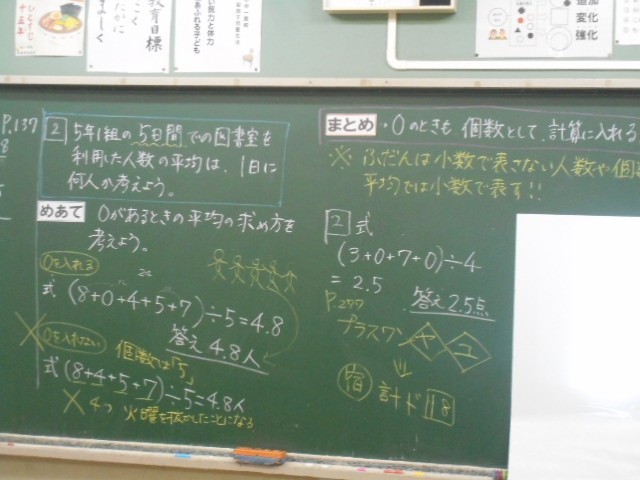 P.137
2 5年1組の5日間での図書室を
利用した人数の平均は、1日に
何人か考えよう。
めあて 0があるときの平均の求め方を
考えよう。
0を入れる
式 (8+0+4+5+7)÷5=4.8
答え 4.8人
0を入れない
個数は「5」
式 (8+4+5+7)÷5=4.8人
4つ 火曜を抜かしたことになる
まとめ・0のときも、個数として、計算に入れる
※ふだんは小数で表さない人数や個
平均では小数で表す!!
2 式
(3+0+7+0)÷4
=2.5
答え 2.5点
P.277
プラスワン ヤ ユ
宿 計ド 18
教育目標
追加
変化
強化